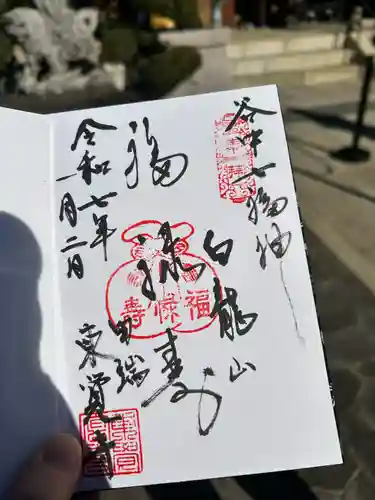 谷中七福神
奉拝
福
禄
寿
福禄寿
白龍山
令和七年
一月二日
田端
東覚寺